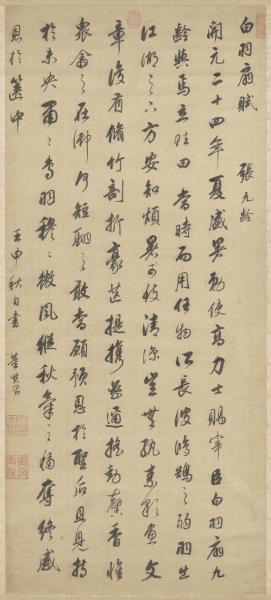 白羽扇賦 張九齡
開元二十四年夏盛暑勅使高力士賜宰臣白羽扇九
齡與焉立獻曰當時而用任物所長彼鴻鵠之弱羽出
江湖之下方安知煩暑可致清涼豈無紈素彩畫文
章復有脩竹剖析豪芒提攜密邇搖動馨香惟
眾禽之在御何短翮之敢當顧預恩於聖后且見持
於未央爾爾鳥羽穆穆微風縱秋氣之移奪終感
恩於篋中
壬申秋日書 董其昌